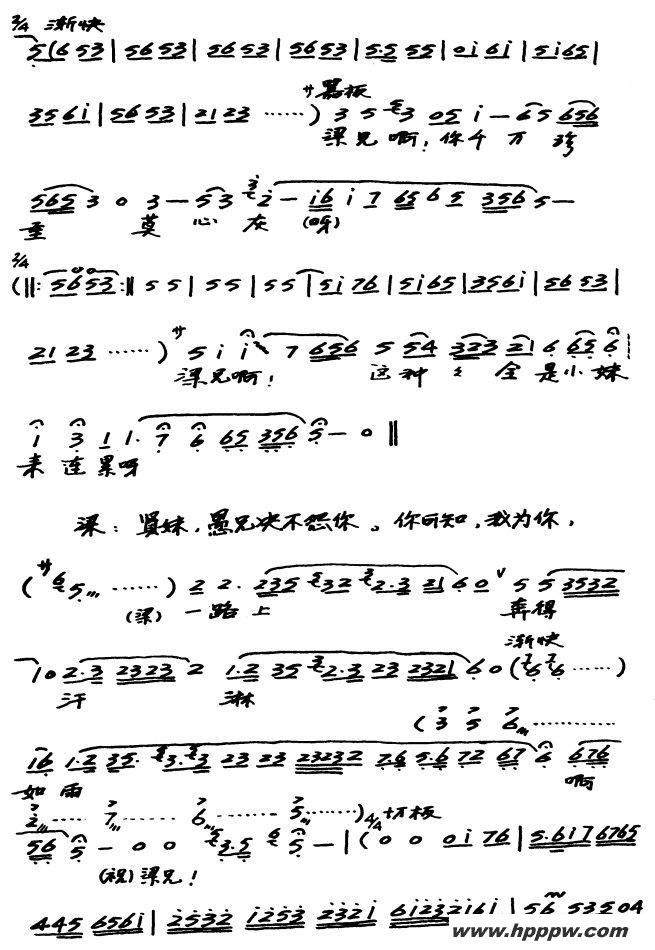 2/4 渐快
5(6 53|56 53|56 53|56 53|5·5 55|0i 6i|5i65|
サ嚣板
35 6i|56 53|21 23 ……) 3 5 3 05 i — 6 5 656
梁兄啊!你千万珍
565 3 0 3 — 5 3 2 — i6 i 7 65 6 5 356 5 —
重 莫心灰(呀)
2/4
(‖: 56 53 :‖ 5 5|5 5|5 5|5i 76|5i65|356i|56 53|
21 23 ……) サ 5 i i 7 656 5 54 323 21 6 65 6
梁兄啊! 这种 全是小妹
1 3 1 1· 7 6 65 356 5 — 0 ‖
来连累呀
梁:贤妹,愚兄决不怨你。你可知,我为你,
(サ 6 5 ……) 2 2· 235 32 2·3 21 6 0 5 5 3532
(梁) 一路上 奔得
渐快
1 0 2·3 2323 2 1·2 35 2·3 23 2321 6 0 (6 6 ……)
汗 淋
(3 5 6 …………
16 1·2 35· 3·3 23 23 23232 76 5·6 72 67 6 676
如雨 啊
2 …… 7 …… 6 …… 5 ……) 4/4 切板
56 5 — 0 0 3·5 5 —|(0 0 0i 76|5·6i7 6765
(祝)梁兄!
445 656i|2532 i253 232i 6i232i6i|56 53504
www.hpppw.com